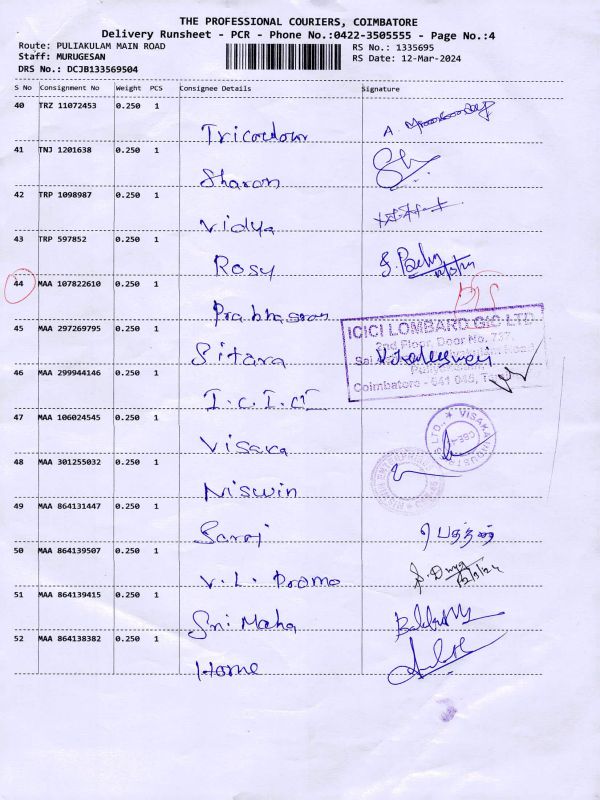 THE PROFESSIONAL COURIERS, COIMBATORE
Delivery Runsheet - PCR - Phone No.:0422-3505555 - Page No.:4
Route: PULIAKULAM MAIN ROAD RS No.: 1335695
Staff: MURUGESAN RS Date: 12-Mar-2024
DRS No.: DCJB133569504
S No Consignment No Weight PCS Consignee Details Signature
40 TRZ 11072453 0.250 1
Tricolour A
41 TNJ 1201638 0.250 1
Sharon
42 TRP 1098987 0.250 1
Vidya
43 TRP 597852 0.250 1
Rosy
44 MAA 107822610 0.250 1
Prabhasran
ICICI LOMBARD GIC LTD
45 MAA 297269795 0.250 1
2nd Floor, Door No. 737,
Sitara
46 MAA 299944146 0.250 1
Coimbatore - 641 045,
I.C.I.CI
47 MAA 106024545 0.250 1
VISAKA INDUSTRIES LTD., CBE-4
Visaka
48 MAA 301255032 0.250 1
Niswin
49 MAA 864131447 0.250 1
Saroj
50 MAA 864139507 0.250 1
V.L. Promo
51 MAA 864139415 0.250 1
Sri Maha
52 MAA 864138382 0.250 1
Home